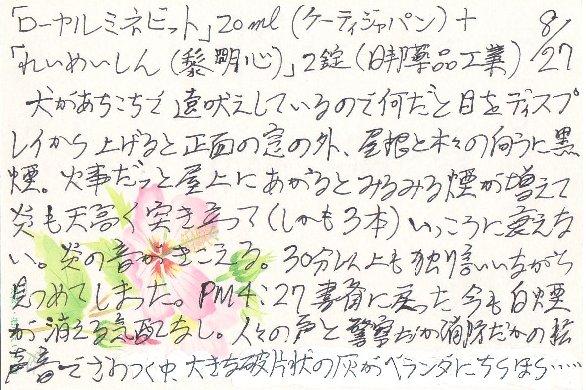 「ローヤルミネビット」20ml（ケーティジャパン）＋ 8/27
「れいめいしん（黎明心）」2錠（日邦薬品工業）
犬があちこちで遠吠えしているので何だと目をディスプ
レイから上げると正面の窓の外、屋根と木々の向うに黒
煙。火事だっと屋上にあがるとみるみる煙が増えて
炎も天高く突き立って（しかも3本）いっこうに衰えな
い。炎の音がきこえる。30分以上も独り言いいながら
見つめてしまった。PM4:27書斎に戻った今も白煙
が消える気配なし。人々の声と警察だか消防だかの
声音でざわつく中、大きな破片状の灰がベランダにちらほら……